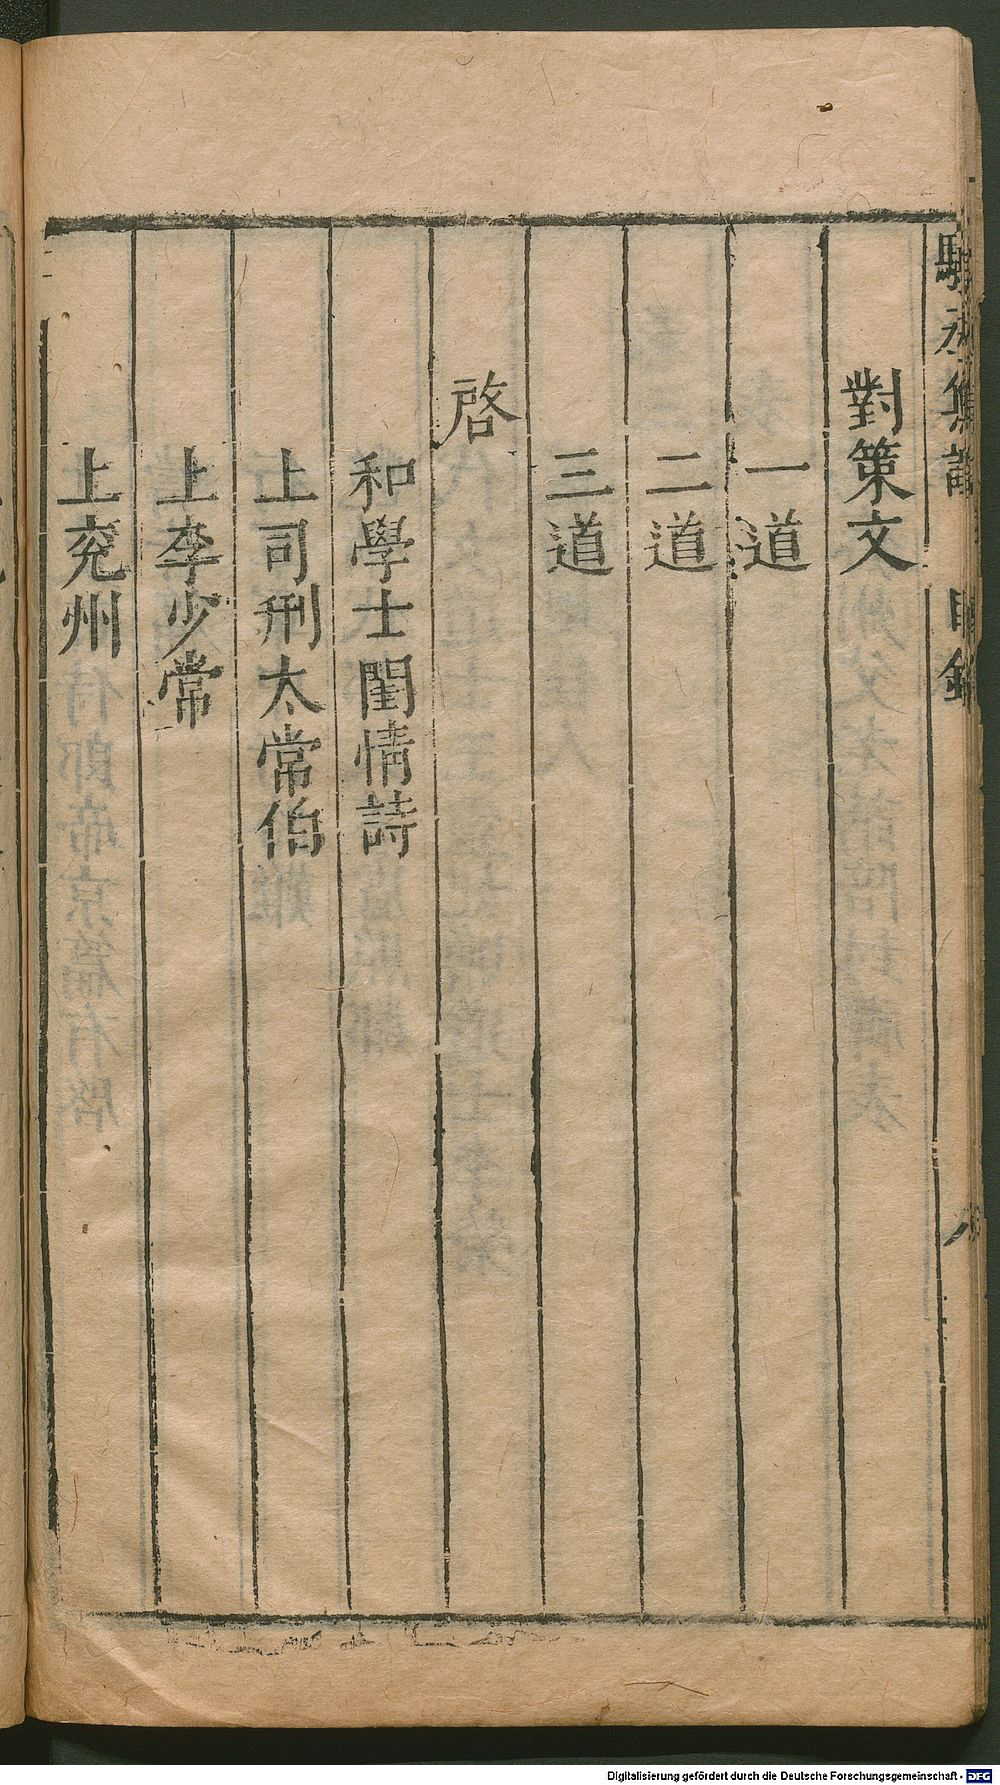 對策文
一道
二道
三道
啓
和學士閨情詩
上司刑太常伯
上李少常
上兖州
Digitalisierung gefördert durch die Deutsche Forschungsgemeinschaft - DFG